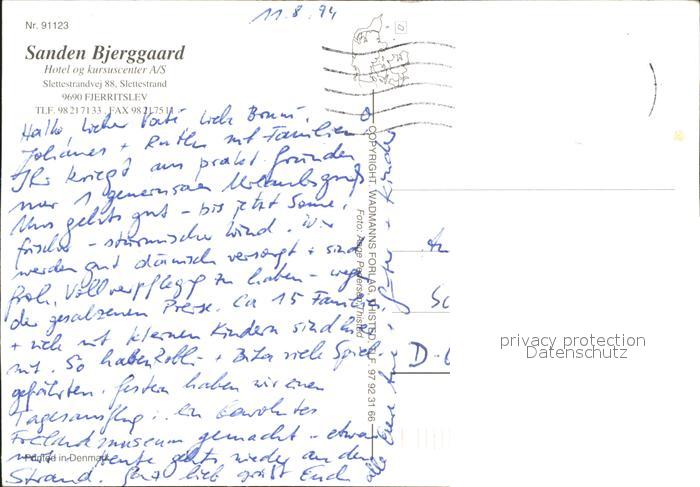 11.8.94
Nr. 91123
Sanden Bjerggaard
Hotel og kursuscenter A/S
Slettestrandvej 88, Slettestrand
9690 FJERRITSLEV
TLF. 98217133 . FAX 98217511
Hallo, lieber Vati, liebe
Johannes + Ruth mit Familien
Ihr kriegt aus prakt. Gründen
nur 1 gemeinsamen Urlaubsgruß
Uns gehts gut - bis jetzt Sonne,
frische - stürmischer Wind. Wir
werden gut dänisch versorgt + sind
froh, Vollverpflegg zu haben - wegen
der gesalzenen Preise. Ca 15 Familien
+ viele mit kleinen Kindern sind hier
mit. So haben + viele Spiel-
gefährten. Gestern haben wir einen
Tagesausflug in ein bewohntes
Freilandmuseum gemacht - etwas
heute gehts wieder an den
Strand. Ganz lieb grüßt Euch
alle Eure + Kinder
Printed in Denmark
COPYRIGHT WADMANNS FORLAG, THISTED, TLF. 97 92 31 66
Foto: Aage Pedersen, Thisted
An
D-
privacy protection
Datenschutz